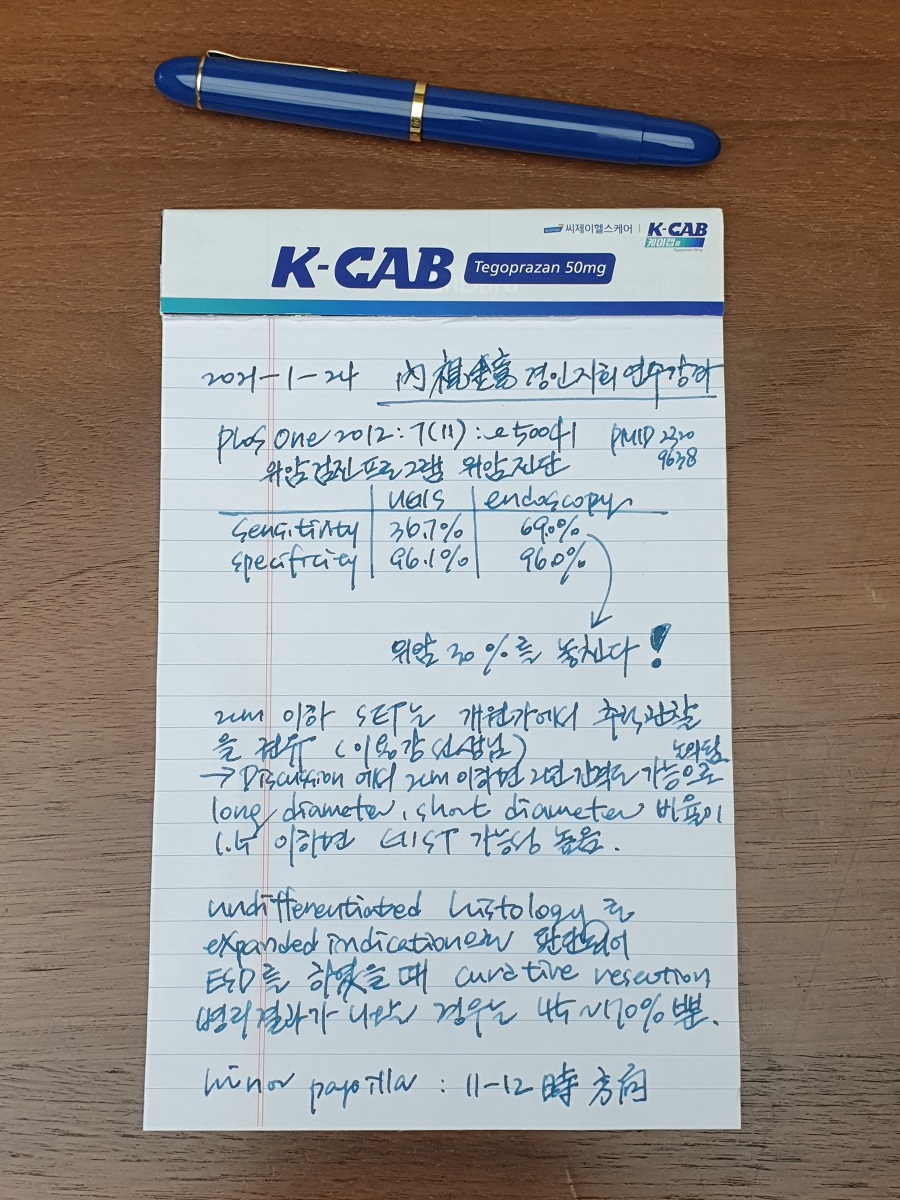 씨제이헬스케어 K-CAB
케이캡정
K-CAB Tegoprazan 50mg
2021-1-24 內視鏡 경인지회 연수강좌
PLoS One 2012: 7(11): e50041 PMID 2320
9638
위암검진프로그램 위암진단
UGIS endoscopy
sensitivity 36.7% 69.0%
specificity 96.1% 96.0%
위암 30%를 놓친다!
2cm 이하 SET는 개원가에서 추적관찰
을 권유 (이용강 선생님)
논의됨
→ Discussion에서 2cm 이하면 2년 간격도 가능으로
long diameter, short diameter 비율이
1.5 이하면 GIST 가능성 높음.
undifferentiated histology로
expanded indication으로 판단되어
ESD를 하였을 때 curative resection
병리결과가 나오는 경우는 45~70% 뿐.
minor papilla : 11-12 時方向